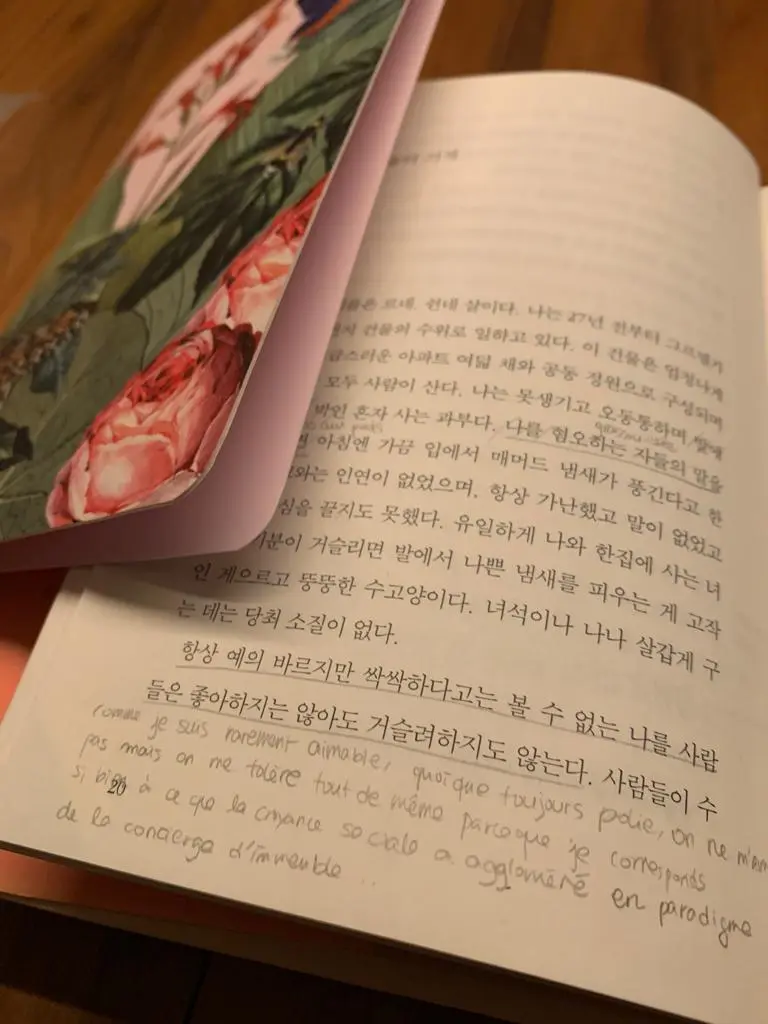 르네. 쉰네 살이다. 나는 27년 전부터 그르넬가
건물의 수위로 일하고 있다. 이 건물은 엄청나게
급스러운 아파트 여덟 채와 공동 정원으로 구성되며
모두 사람이 산다. 나는 못생기고 오동통하며, 발에
박인 혼자 사는 과부다. 나를 혐오하는 자들의 말을
아침엔 가끔 입에서 매머드 냄새가 풍긴다고 한
와는 인연이 없었으며, 항상 가난했고 말이 없었고
심을 끌지도 못했다. 유일하게 나와 한집에 사는 녀
기분이 거슬리면 발에서 나쁜 냄새를 피우는 게 고작
인 게으르고 뚱뚱한 수고양이다. 녀석이나 나나 살갑게 구
는 데는 당최 소질이 없다.
항상 예의 바르지만 싹싹하다고는 볼 수 없는 나를 사람
들은 좋아하지는 않아도 거슬려하지도 않는다. 사람들이 수
comme je suis rarement aimable, quoique toujours polie, on ne m'aime
pas mais on me tolère tout de même parce que je corresponds
si bien à ce que la croyance sociale a aggloméré en paradigme
de la concierge d'immeuble ...
20